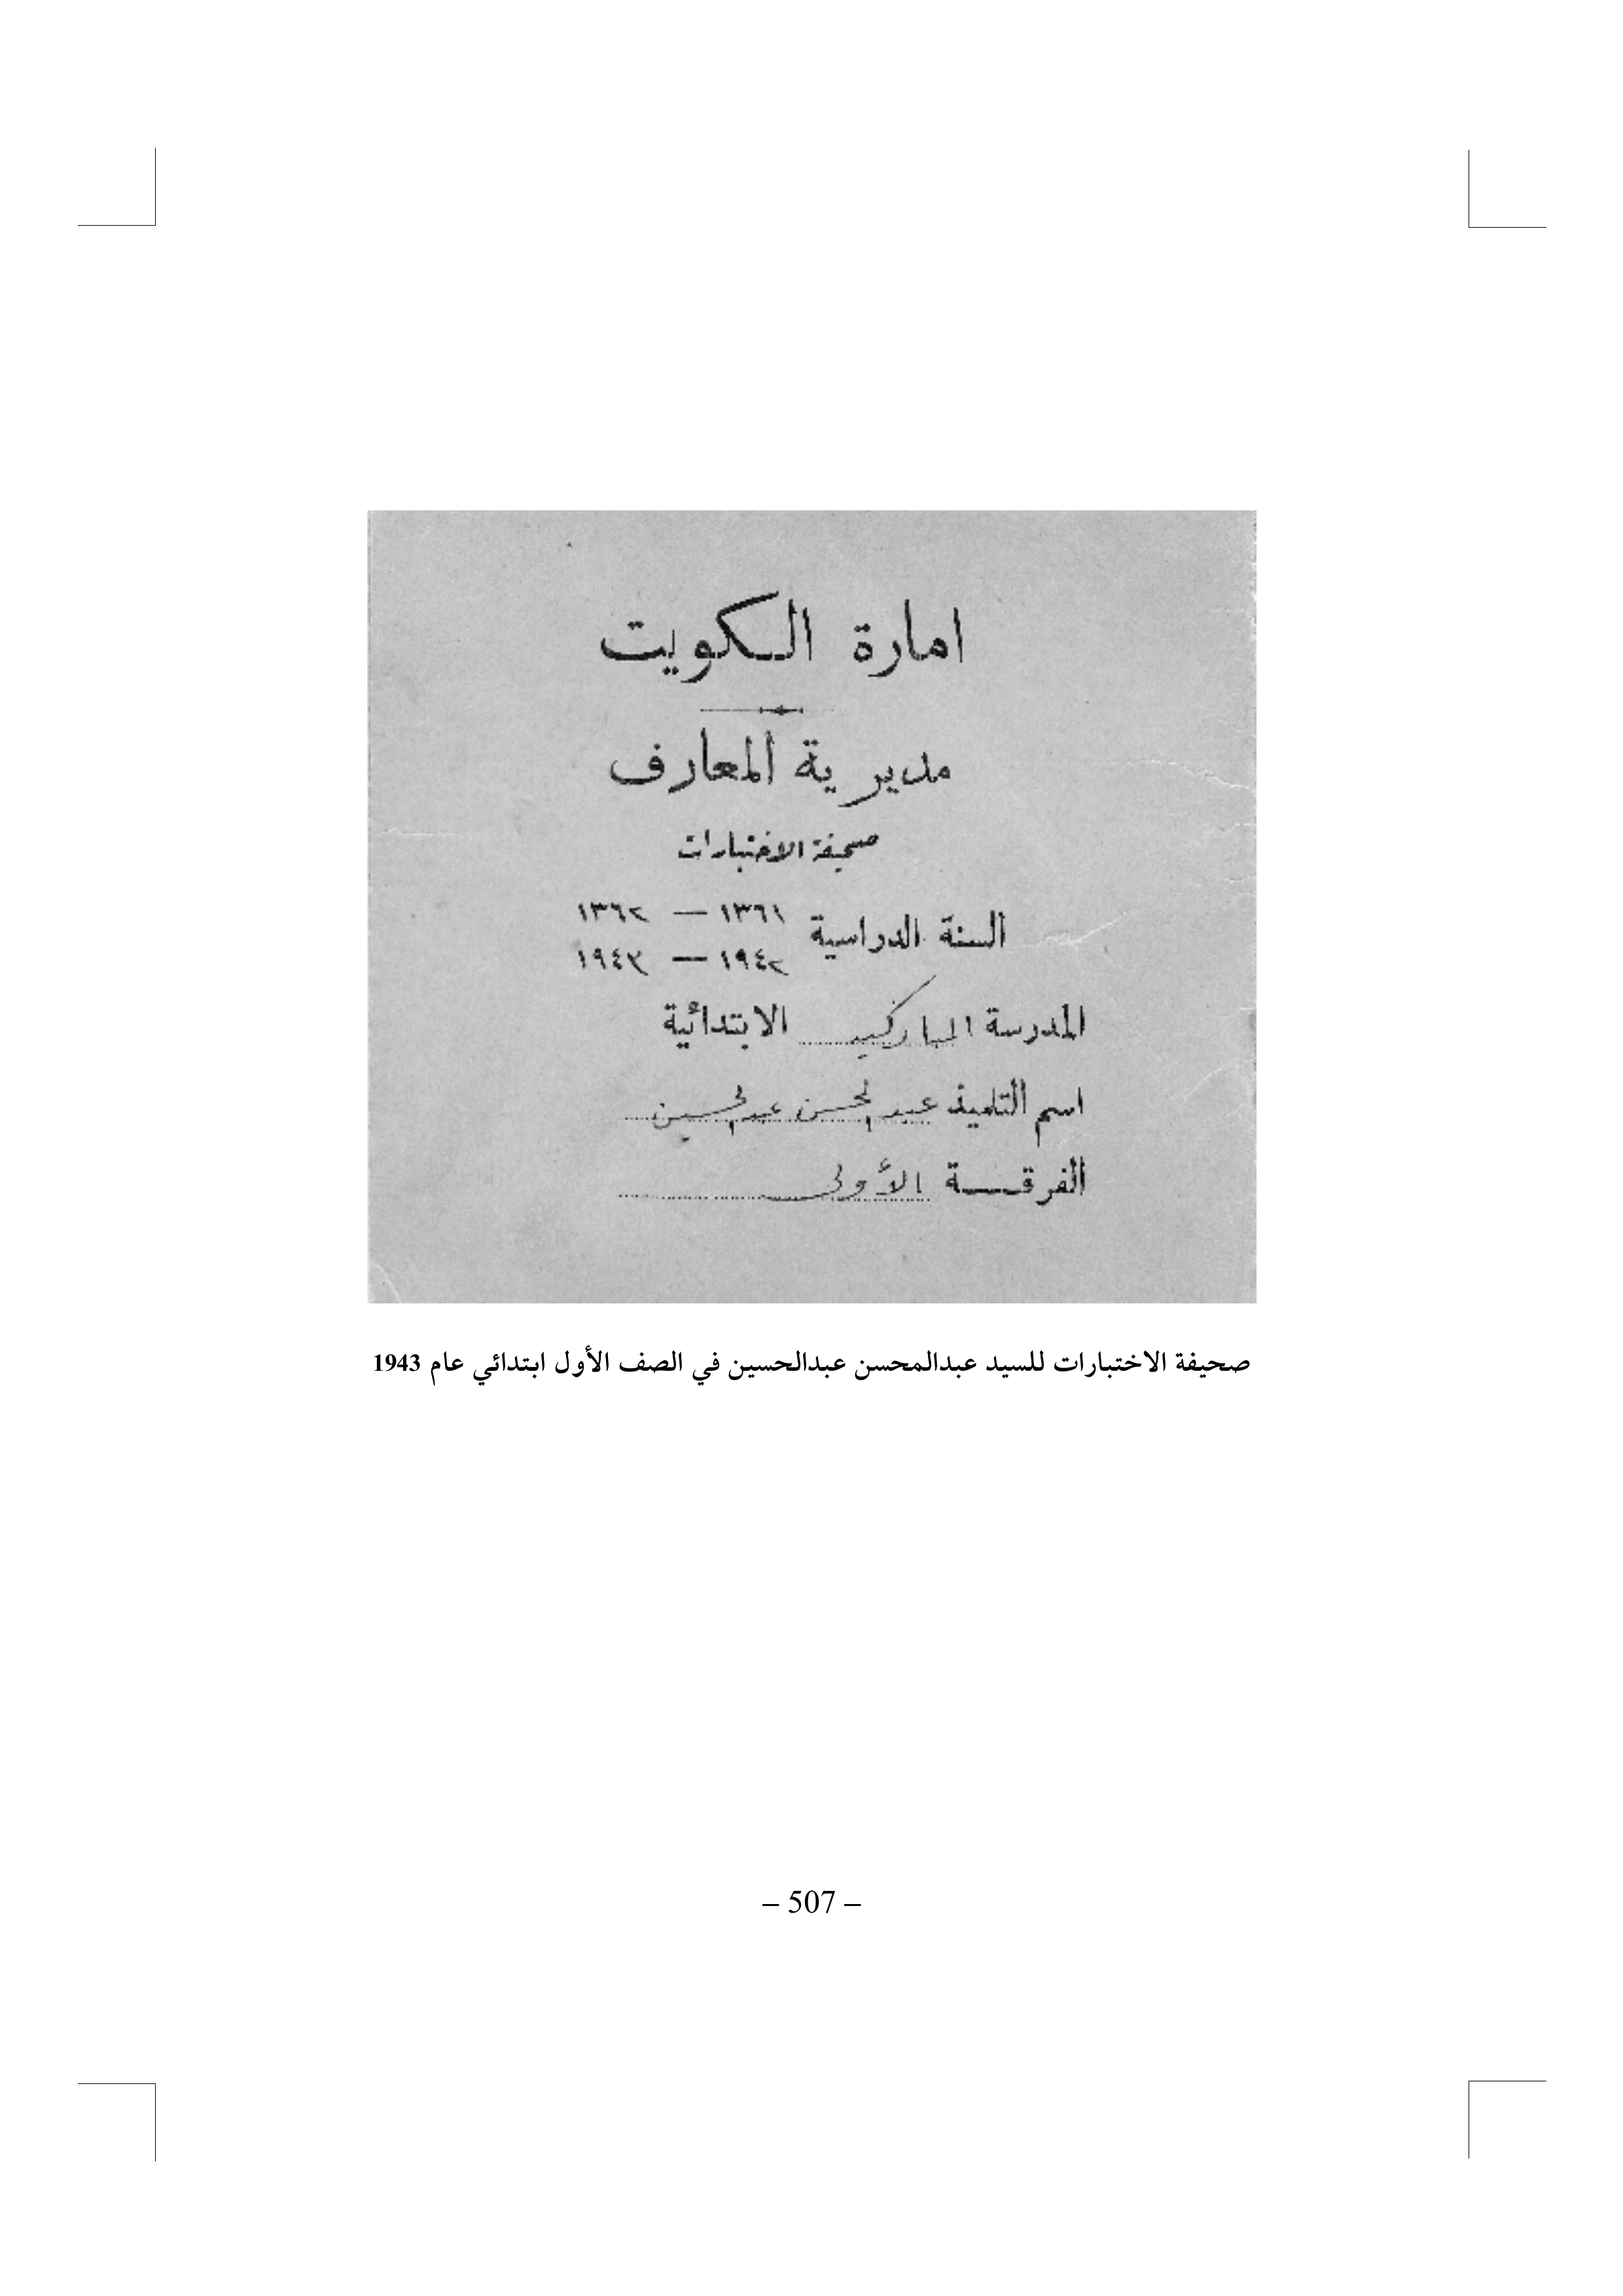 امارة الكويت
مديرية المعارف
صحيفة الاختبارات
السنة الدراسية ١٣٦١ — ١٣٦٢
١٩٤٢ — ١٩٤٣
المدرسة المباركية الابتدائية
اسم التلميذ عبد المحسن عبد الحسين
الفرقة الأولى
صحيفة الاختبارات للسيد عبدالمحسن عبدالحسين في الصف الأول ابتدائي عام 1943
– 507 –